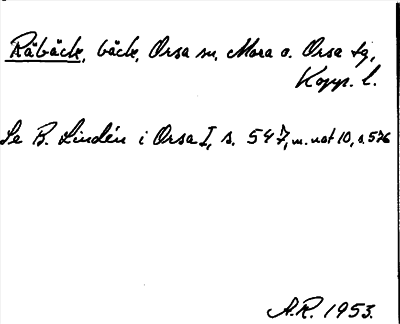 Råbäck, bäck, Orsa sn, Mora o. Orsa tg,
Kopp. l.
Se B. Lindén i Orsa I, s. 547, m. not 10, s. 576
A.R. 1953.